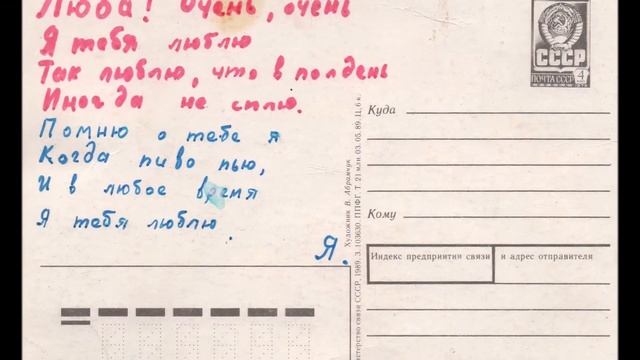 Люба! Очень, очень
Я тебя люблю
Так люблю, что в полдень
Иногда не сплю.
Помню о тебе я
Когда пиво пью,
И в любое время
Я тебя люблю.
Я.
СССР
ПОЧТА СССР
4
Куда
Кому
Индекс предприятия связи
и адрес отправителя
Художник В. Абрамчук
министерство связи СССР, 1989. З. 103630. ППФГ. Т. 21 млн. 03. 05. 89. Ц. 6 к.